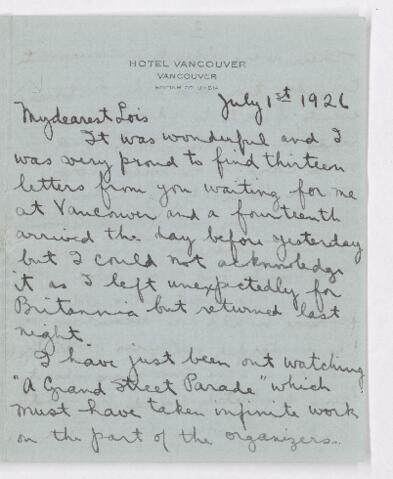 HOTEL VANCOUVER
VANCOUVER
BRITISH COLUMBIA
July 1st 1926
My dearest Lois
It was wonderful and I
was very proud to find thirteen
letters from you waiting for me
at Vancouver and a fourteenth
arrived the day before yesterday
but I could not acknowledge
it as I left unexpectedly for
Britannia but returned last
night.
I have just been out watching
"A Grand Street Parade" which
must have taken infinite work
on the part of the organizers..